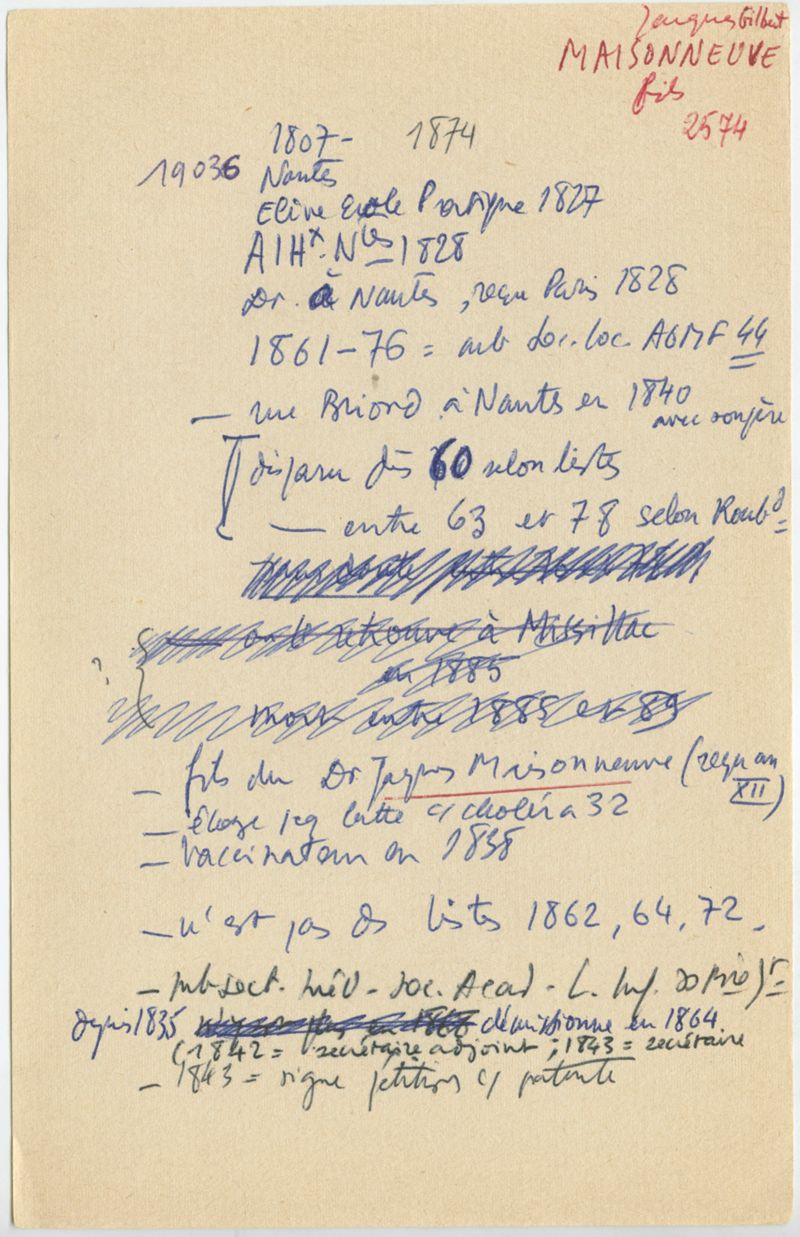 Jacques Gilbert
MAISONNEUVE
fils
2574
1807- 1874
19036 Nantes
Elève Ecole Pratique 1827
AIHx. Ntes 1828
Dr. à Nantes, reçu Paris 1828
1861-76 = mb Soc. loc. AGMF 44
— rue Briord à Nantes en 1840
avec son père
disparu dès 60 selon listes
— entre 63 et 78 selon Roubd
on le retrouve à Missillac
en 1885
mort entre 1885 et 89
?
— fils du Dr Jacques Maisonneuve (reçu an
XII)
— éloge pr lutte c/ choléra 32
— vaccinateur en 1838
— n'est pas ds listes 1862, 64, 72.
— mb sect. Méd - Soc. Acad - L. Inf.
depuis 1835 démissionne en 1864
(1842 = secrétaire adjoint ; 1843 = secrétaire
— 1843 = signe pétition c/ patente